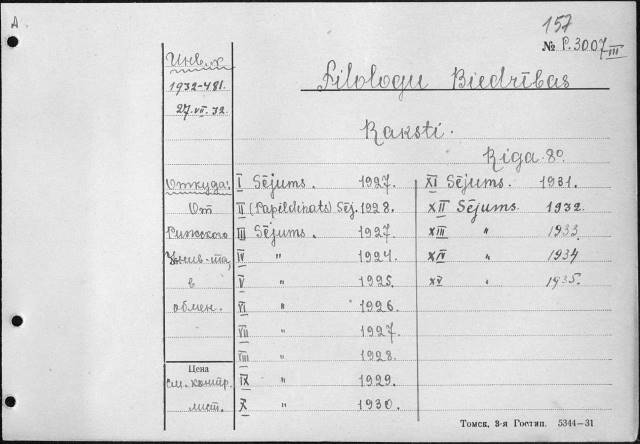 А
157
№ P.3007 III
Инв. X
1932-481.
27.VII.32.
Filologu Biedrības
Raksti.
Riga 8º.
Откуда:
От
Рижского
Унив-та,
в
обмен.
Цена
см. контр.
лист.
I Sējums. 1927.
II (Papildināts) Sēj. 1928.
III Sējums. 1927
IV " 1924.
V " 1925.
VI " 1926.
VII " 1927.
VIII " 1928.
IX " 1929.
X " 1930.
XI Sējums. 1931.
XII Sējums. 1932.
XIII " 1933
XIV " 1934
XV " 1935.
Томск, 3-я Гостип. 5344—31